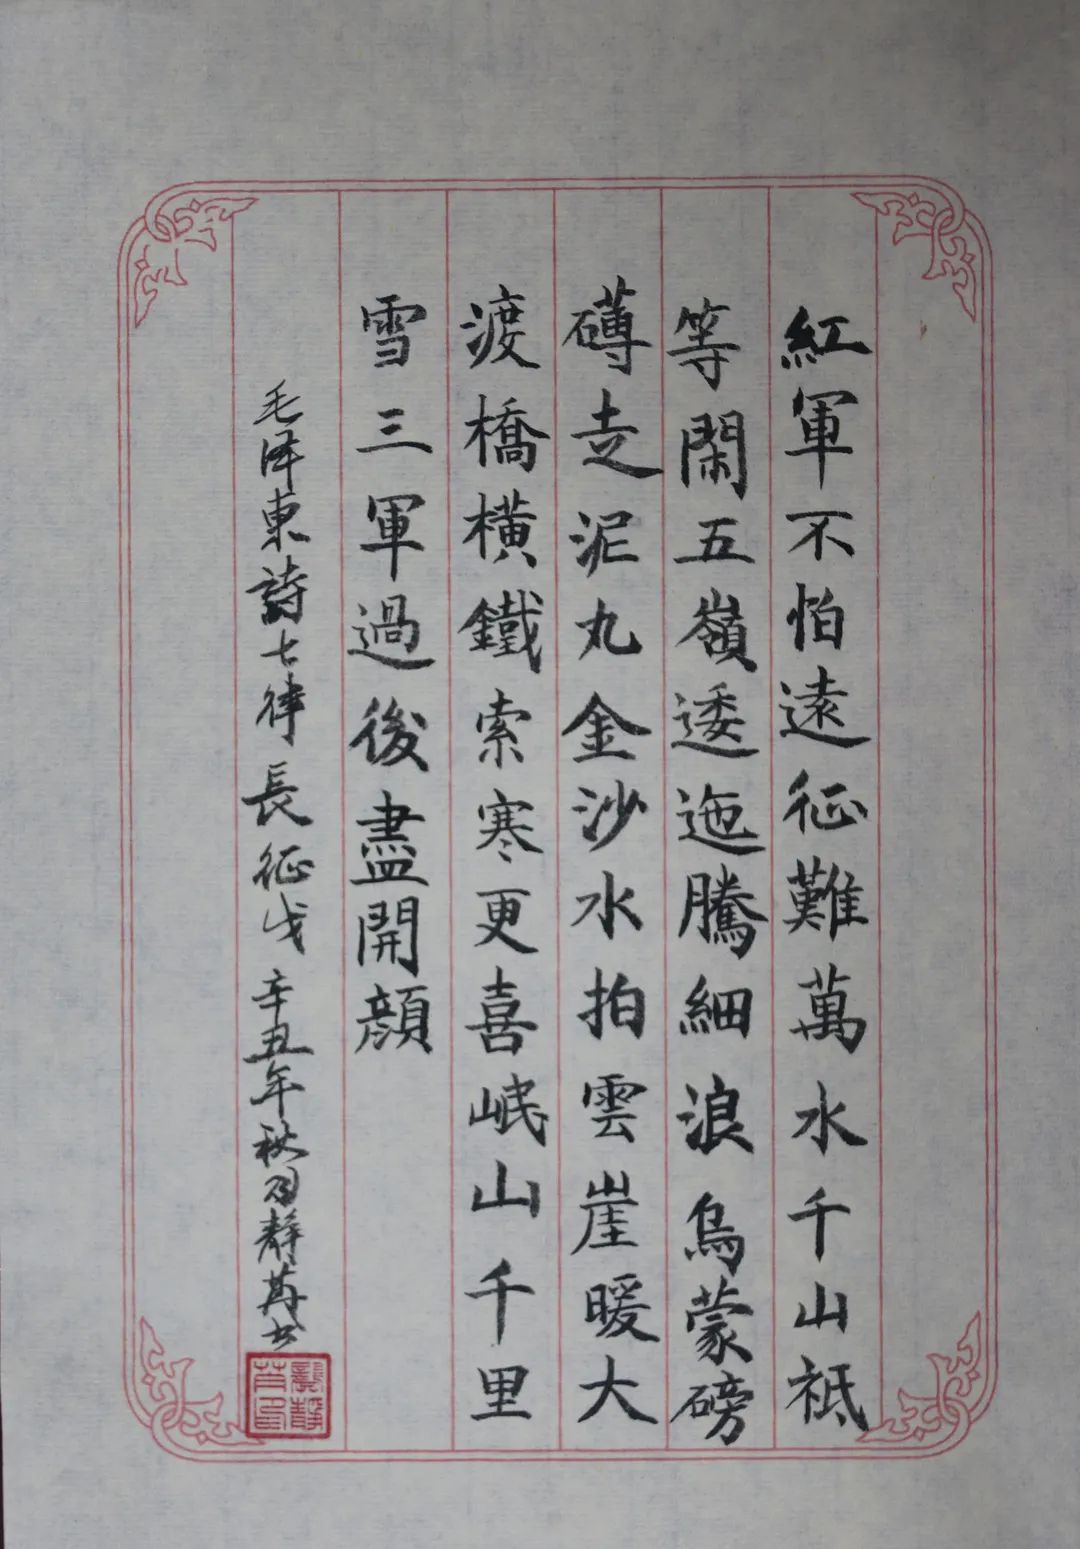 紅軍不怕遠征難萬水千山祗
等閑五嶺逶迤騰細浪烏蒙磅
礴走泥丸金沙水拍雲崖暖大
渡橋橫鐵索寒更喜岷山千里
雪三軍過後盡開顔
毛泽東詩七律長征 辛丑年秋月靜苒书